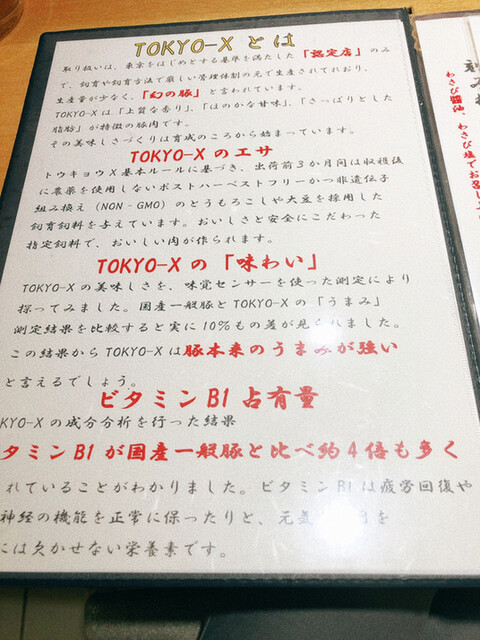 TOKYO-X とは
取り扱いは、東京をはじめとする基準を満たした「認定店」のみ
で、飼育や飼育方法で厳しい管理体制の元で生産されており、
生産量が少なく、「幻の豚」と言われています。
TOKYO-Xは「上質な香り」、「ほのかな甘味」、「さっぱりとした
脂肪」が特徴の豚肉です。
その美味しさづくりは育成のころから始まっています。
TOKYO-Xのエサ
トウキョウX基本ルールに基づき、出荷前3か月間は収穫後
に農薬を使用しないポストハーベストフリーかつ非遺伝子
組み換え(NON-GMO)のとうもろこしや大豆を採用した
飼育飼料を与えています。おいしさと安全にこだわった
指定飼料で、おいしい肉が作られます。
TOKYO-Xの「味わい」
TOKYO-Xの美味しさを、味覚センサーを使った測定により
探ってみました。国産一般豚とTOKYO-Xの「うまみ」
測定結果を比較すると実に10%もの差が見られました。
この結果からTOKYO-Xは豚本来のうまみが強い
と言えるでしょう。
ビタミンB1占有量
KYO-Xの成分分析を行った結果
タミンB1が国産一般豚と比べ約4倍も多く
れていることがわかりました。ビタミンB1は疲労回復や
神経の機能を正常に保ったりと、元気 を
には欠かせない栄養素です。
わさび醤油、わさび塩でお召し上